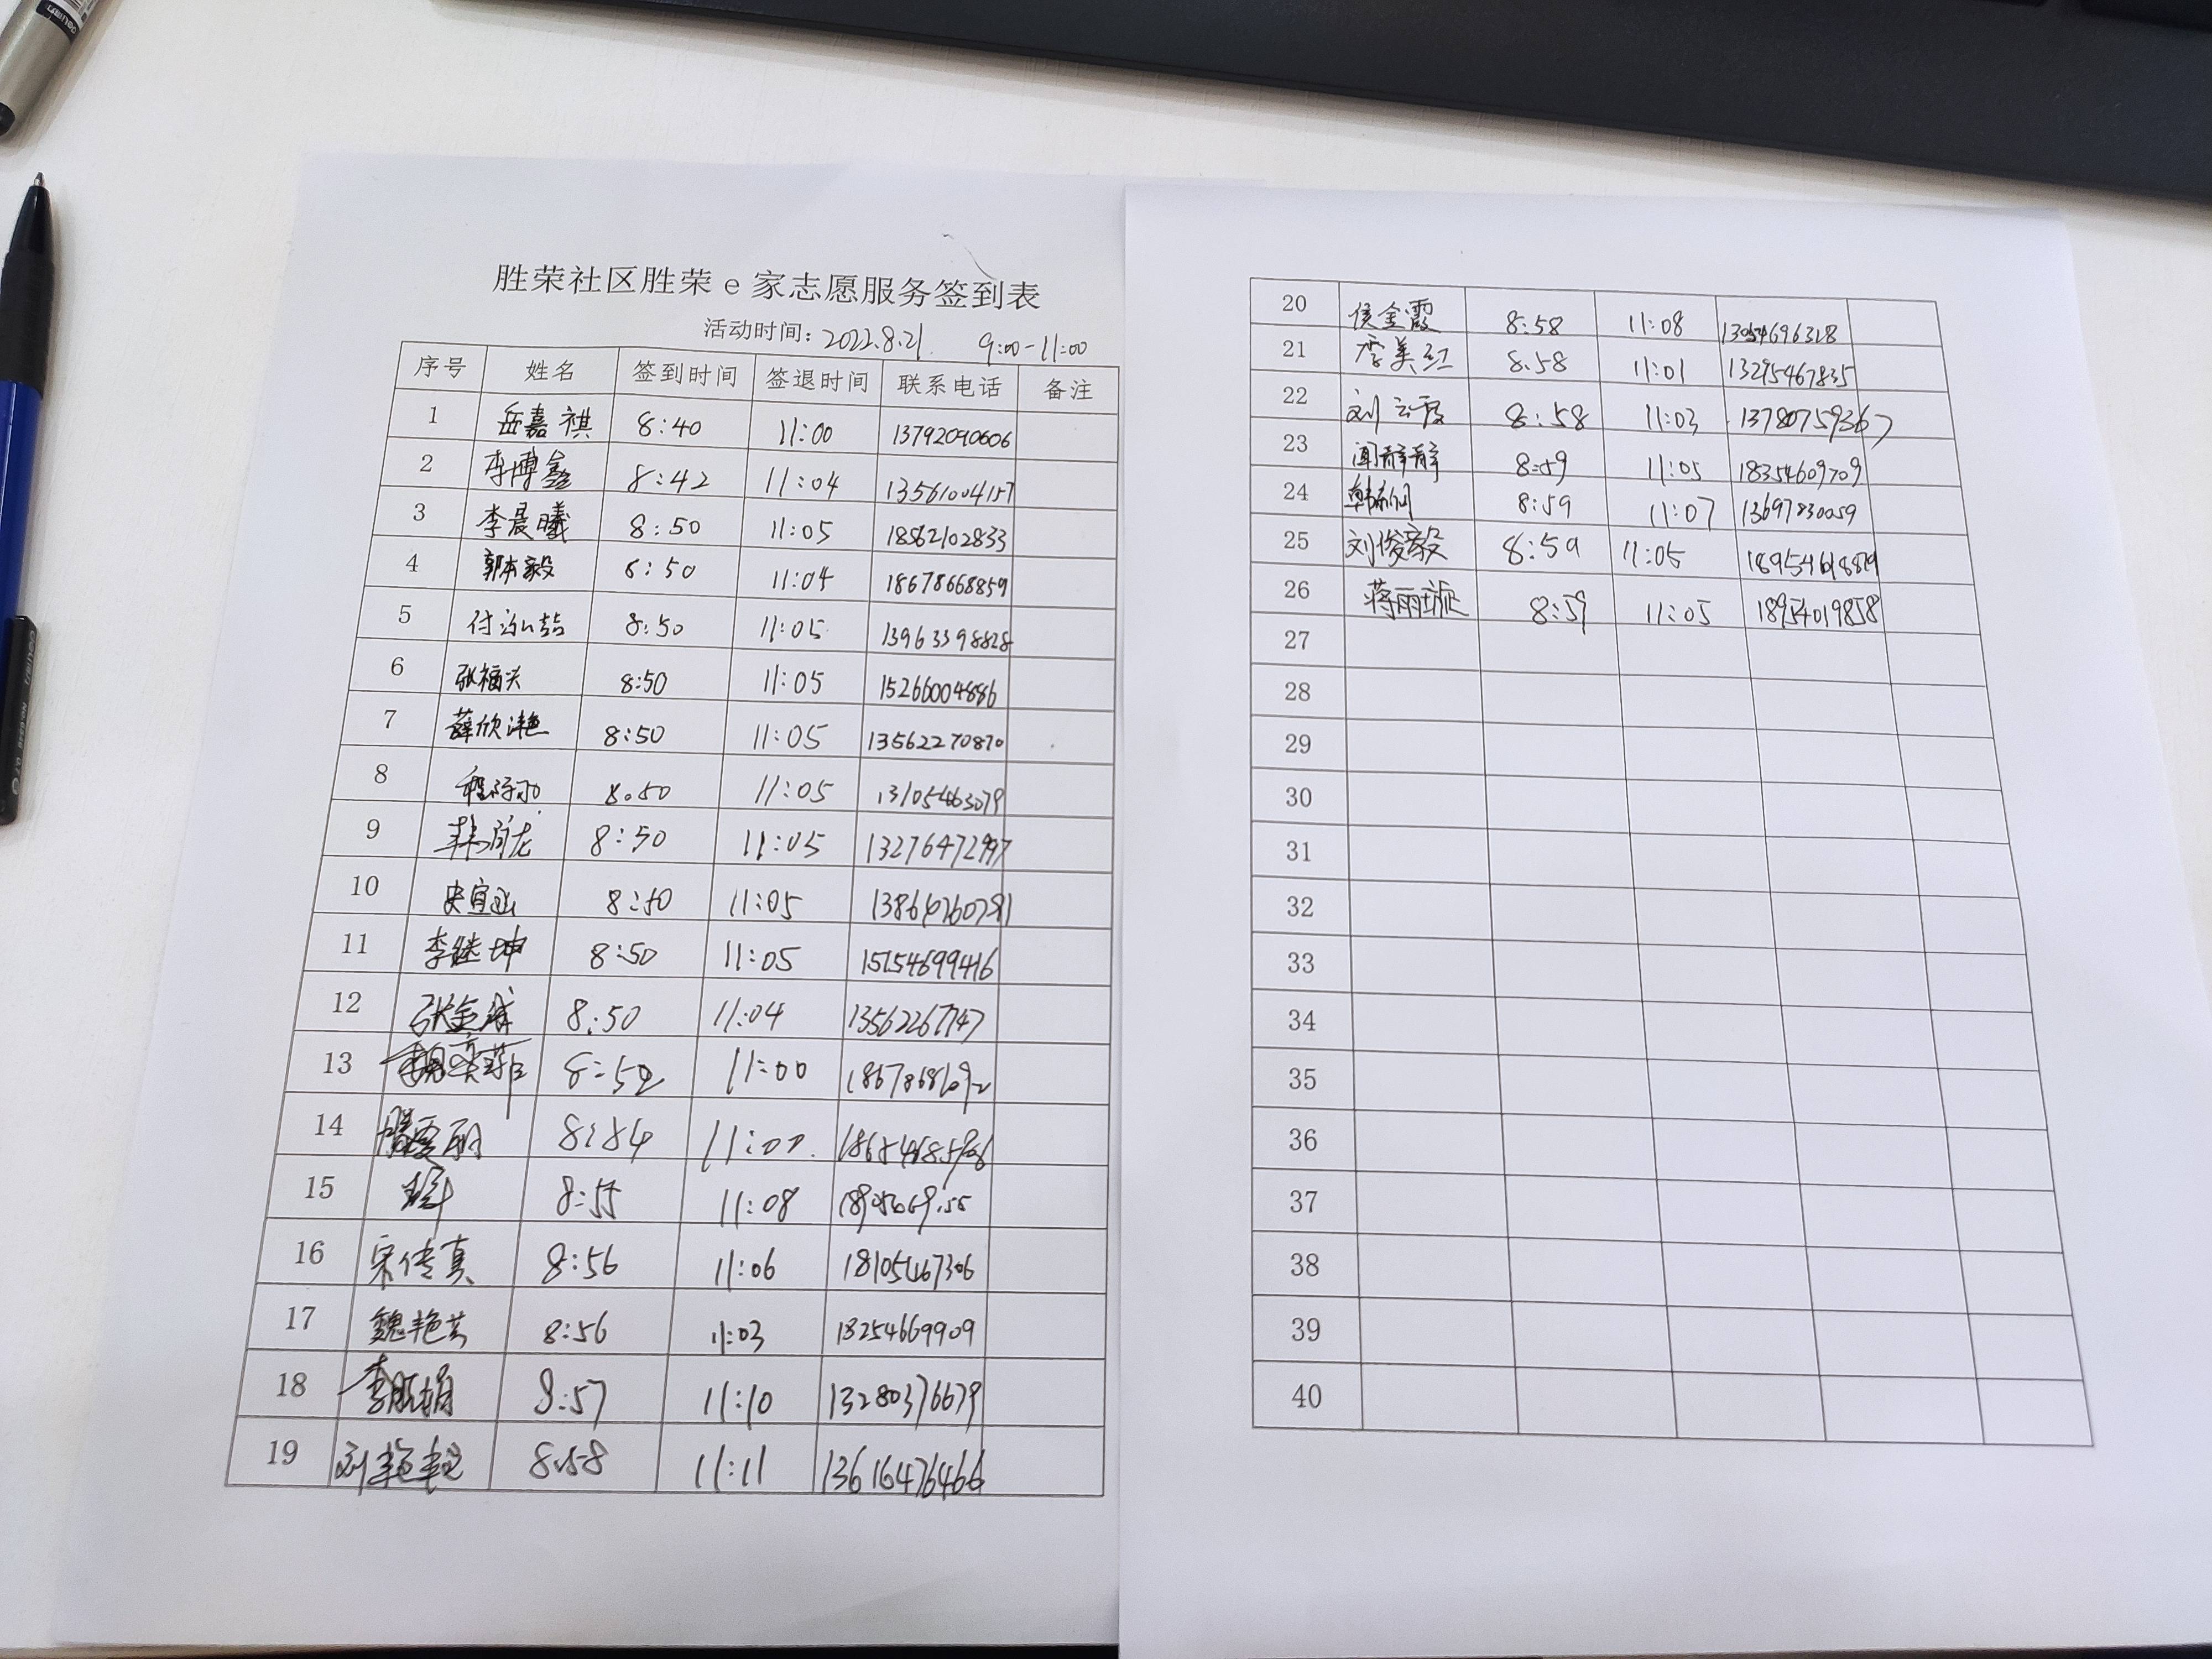 胜荣社区胜荣e家志愿服务签到表
活动时间：2022.8.21. 9:00-11:00
序号 姓名 签到时间 签退时间 联系电话 备注
1 岳嘉祺 8:40 11:00 13792090606
2 李博鑫 8:42 11:04 13561004157
3 李晨曦 8:50 11:05 18562102833
4 郭本毅 8:50 11:04 18678668859
5 8:50 11:05 13963398828
6 张福兴 8:50 11:05 15266004886
7 薛欣滟 8:50 11:05 13562270870
8 8.50 11:05 13105463079
9 8:50 11:05 13276472997
10 史宜 8:50 11:05
11 李继坤 8:50 11:05 15154699416
12 张金 8:50 11:04 13562267747
13 11:00
14
15 8:55 11:08
16 宋传真 8:56 11:06 18105467306
17 魏艳芸 8:56 11:03 18254669909
18 8:57 11:10 13280376679
19 刘艳艳 8:58 11:11 13616476466
20 侯金霞 8:58 11:08 13054696328
21 李美红 8.58 11:01 13295467835
22 刘云霞 8:58 11:03 13780759367
23 闻静静 8:59 11:05 18354609709
24 8:59 11:07 13697830059
25 刘俊毅 8:59 11:05
26 蒋丽璇 8:59 11:05 18954019858
27
28
29
30
31
32
33
34
35
36
37
38
39
40